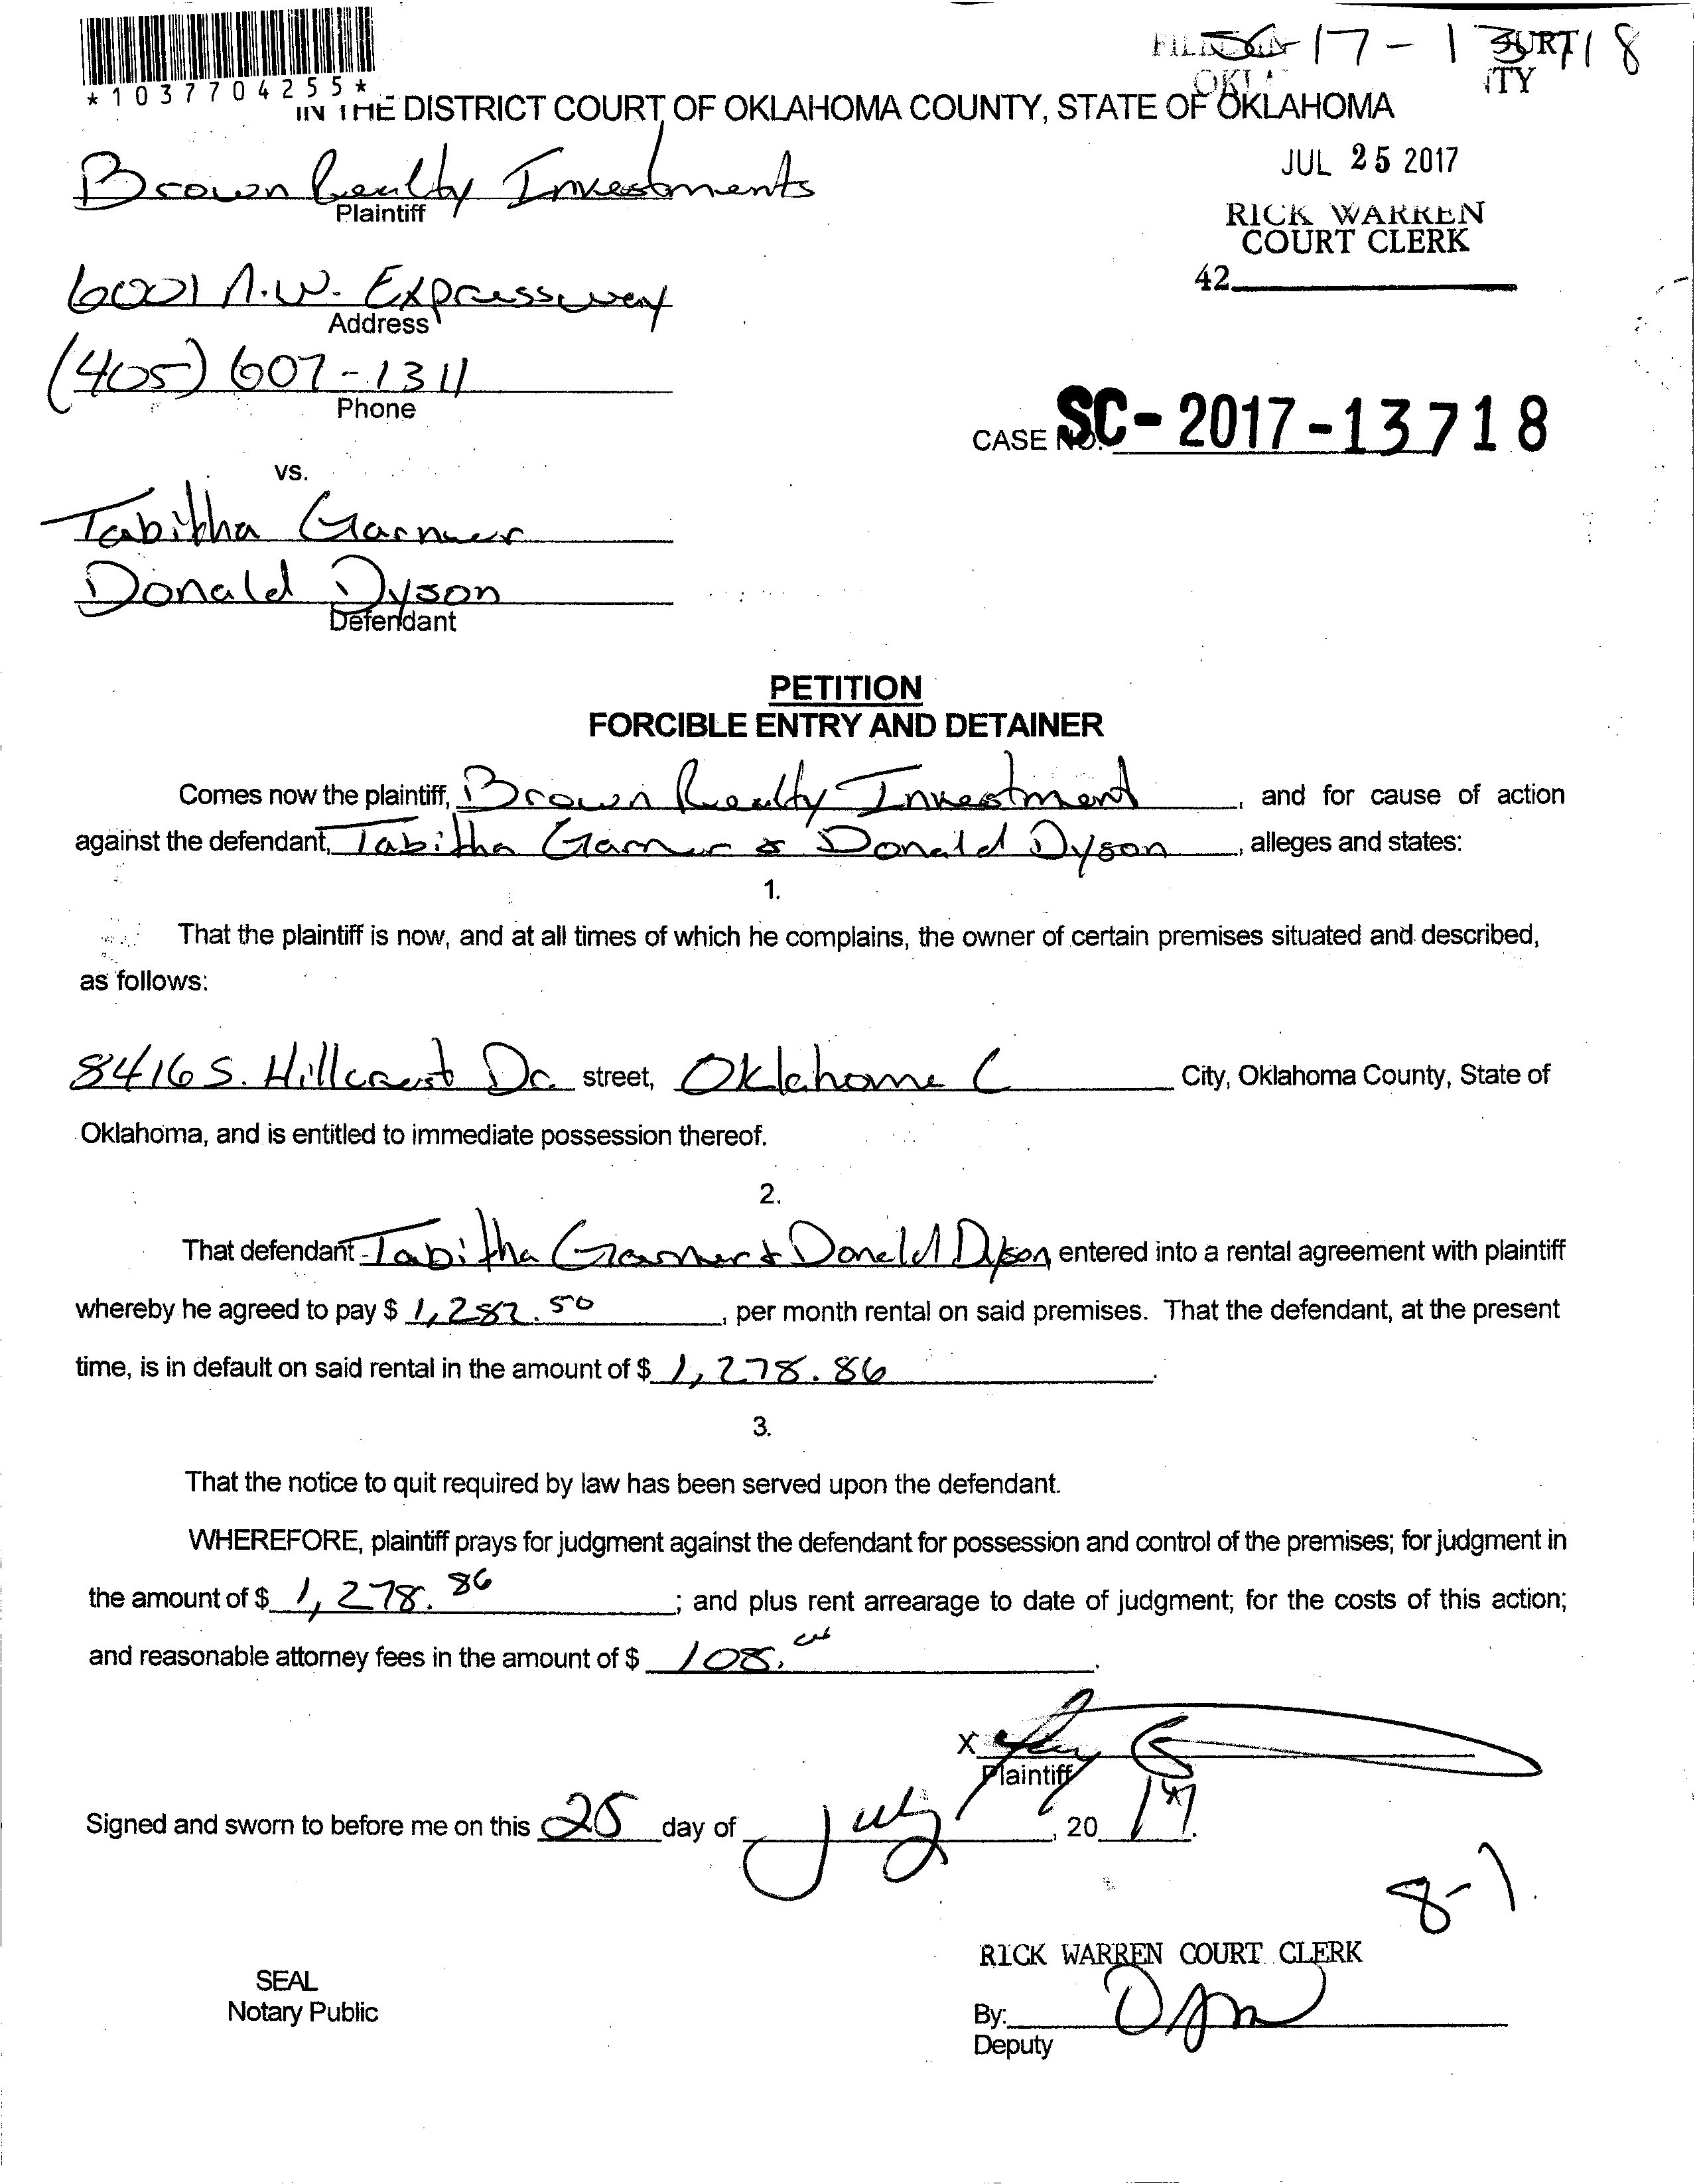 *1037704255*
SC-17-13718
FILED IN
IN THE DISTRICT COURT OF OKLAHOMA COUNTY, STATE OF OKLAHOMA
JUL 25 2017
Brown Realty Investments
Plaintiff
RICK WARREN
COURT CLERK
42
6001 N.W. Expressway
Address
(405) 607-1311
Phone
CASE NO. SC-2017-13718
vs.
Tabitha Garner
Donald Dyson
Defendant
PETITION
FORCIBLE ENTRY AND DETAINER
Comes now the plaintiff, Brown Realty Investment, and for cause of action
against the defendant, Tabitha Garner & Donald Dyson, alleges and states:
1.
That the plaintiff is now, and at all times of which he complains, the owner of certain premises situated and described,
as follows:
8416 S. Hillcrest Dr. street, Oklahoma C City, Oklahoma County, State of
Oklahoma, and is entitled to immediate possession thereof.
2.
That defendant Tabitha Garner & Donald Dyson entered into a rental agreement with plaintiff
whereby he agreed to pay $ 1,287.50, per month rental on said premises. That the defendant, at the present
time, is in default on said rental in the amount of $ 1,278.86.
3.
That the notice to quit required by law has been served upon the defendant.
WHEREFORE, plaintiff prays for judgment against the defendant for possession and control of the premises; for judgment in
the amount of $ 1,278.86; and plus rent arrearage to date of judgment; for the costs of this action;
and reasonable attorney fees in the amount of $ 108.
X
Plaintiff
Signed and sworn to before me on this 25 day of July, 2017.
8-1
RICK WARREN COURT CLERK
SEAL
Notary Public
By:
Deputy